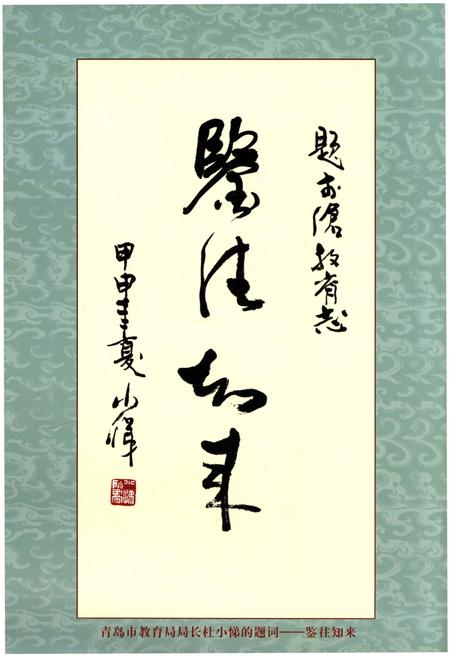 题李滄教育志
鑒往知来
甲申年夏 小悌
青岛市教育局局长杜小悌的题词——鉴往知来